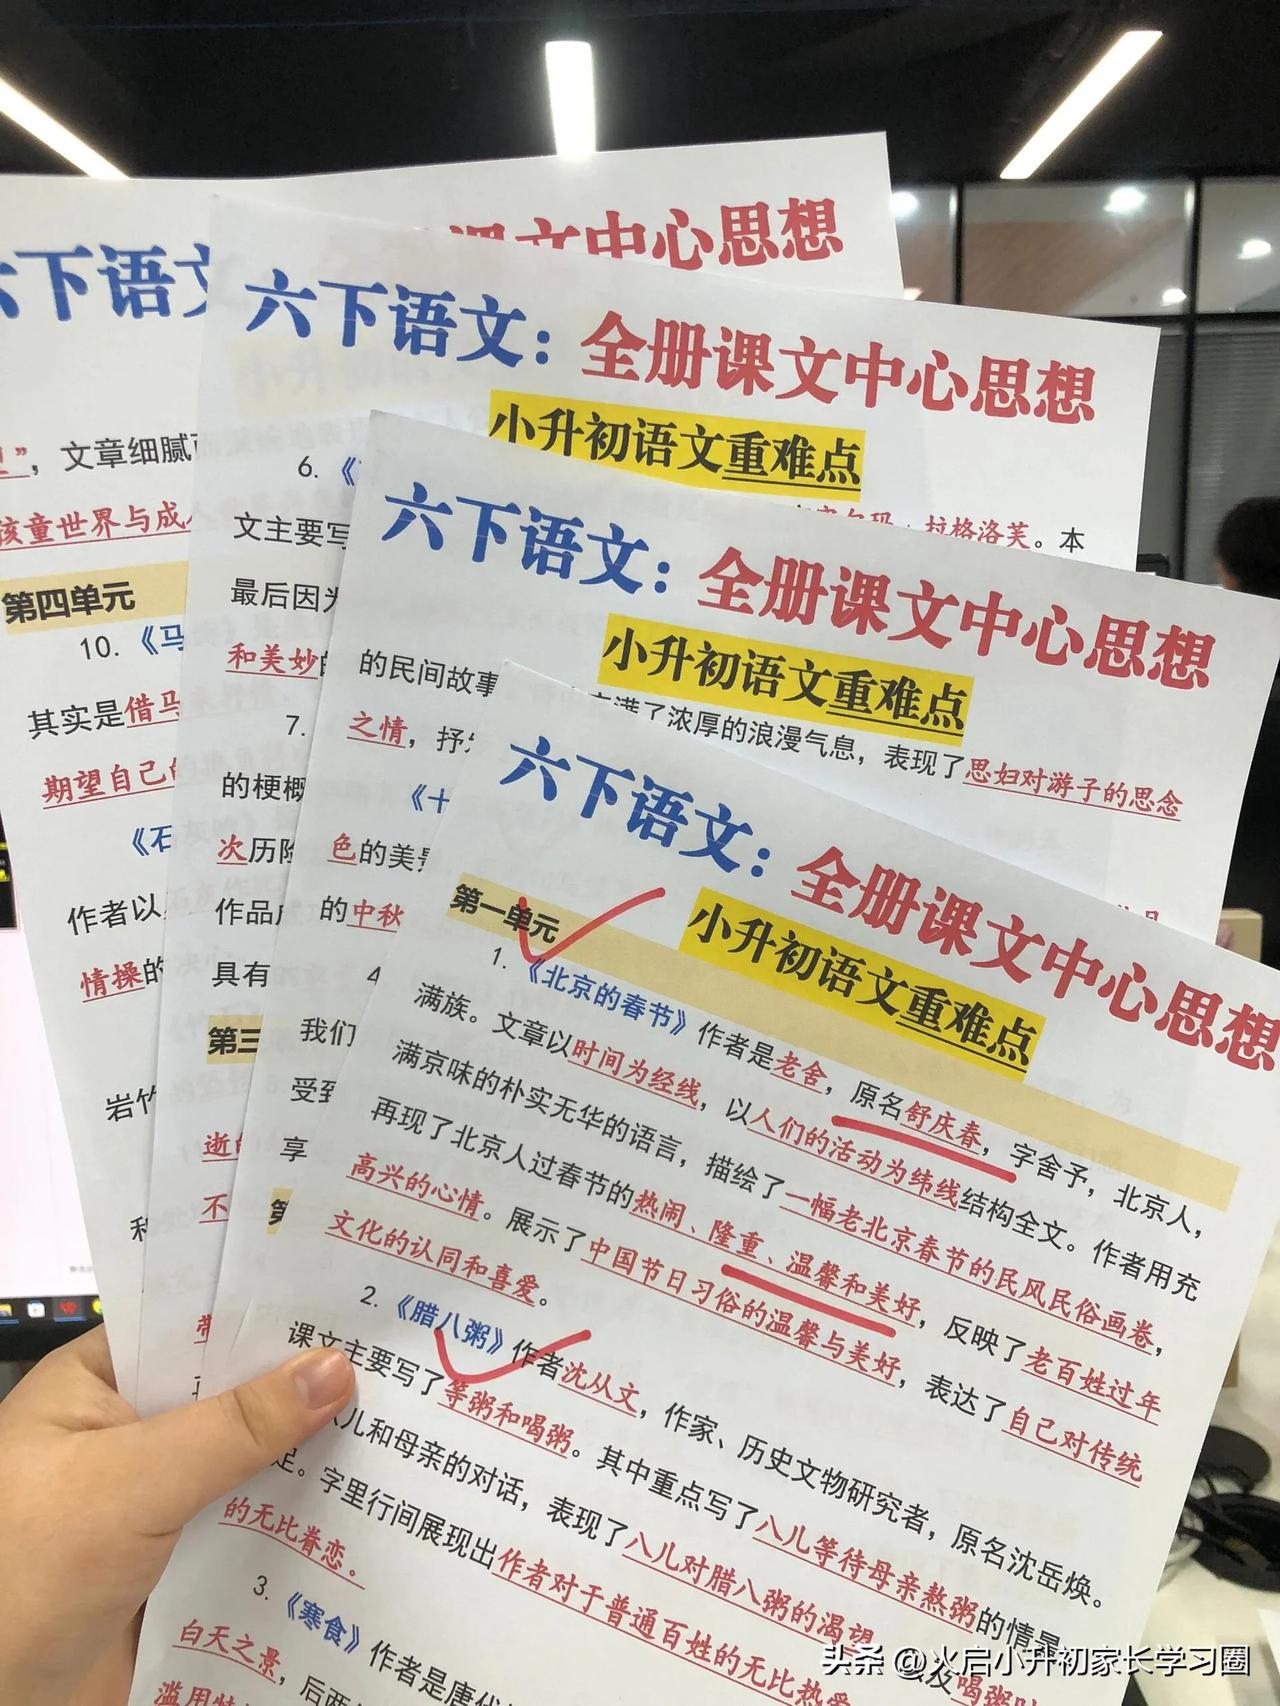 课文中心思想
六下语文
”，文章细腻
孩童世界与成人
第四单元
10.《马
其实是借马
期望自己的
《石
作者以
情操的
岩竹
六下语文：全册课文中心思想
小升初语文重难点
6.《
拉格洛芙。本
文主要写
最后因为
和美妙的
7.
的梗概
次历险
作品
具有
第三
逝的
不
六下语文：全册课文中心思想
小升初语文重难点
的民间故事
满了浓厚的浪漫气息，表现了思妇对游子的思念
之情，抒发
《十
色的美景
的中秋
4
我们
受到
享
第
六下语文：全册课文中心思想
小升初语文重难点
第一单元
1.《北京的春节》作者是老舍，原名舒庆春，字舍予，北京人，
满族。文章以时间为经线，以人们的活动为纬线结构全文。作者用充
满京味的朴实无华的语言，描绘了一幅老北京春节的民风民俗画卷，
再现了北京人过春节的热闹、隆重、温馨和美好，反映了老百姓过年
高兴的心情。展示了中国节日习俗的温馨与美好，表达了自己对传统
文化的认同和喜爱。
2.《腊八粥》作者沈从文，作家、历史文物研究者，原名沈岳焕。
课文主要写了等粥和喝粥。其中重点写了八儿等待母亲熬粥的情景
八儿和母亲的对话，表现了八儿对腊八粥的渴望 以及喝粥时
足。字里行间展现出作者对于普通百姓的无比热爱
的无比眷恋。
3.《寒食》作者是唐代
白天之景，后两
滥用特
头条 @火启小升初家长学习圈